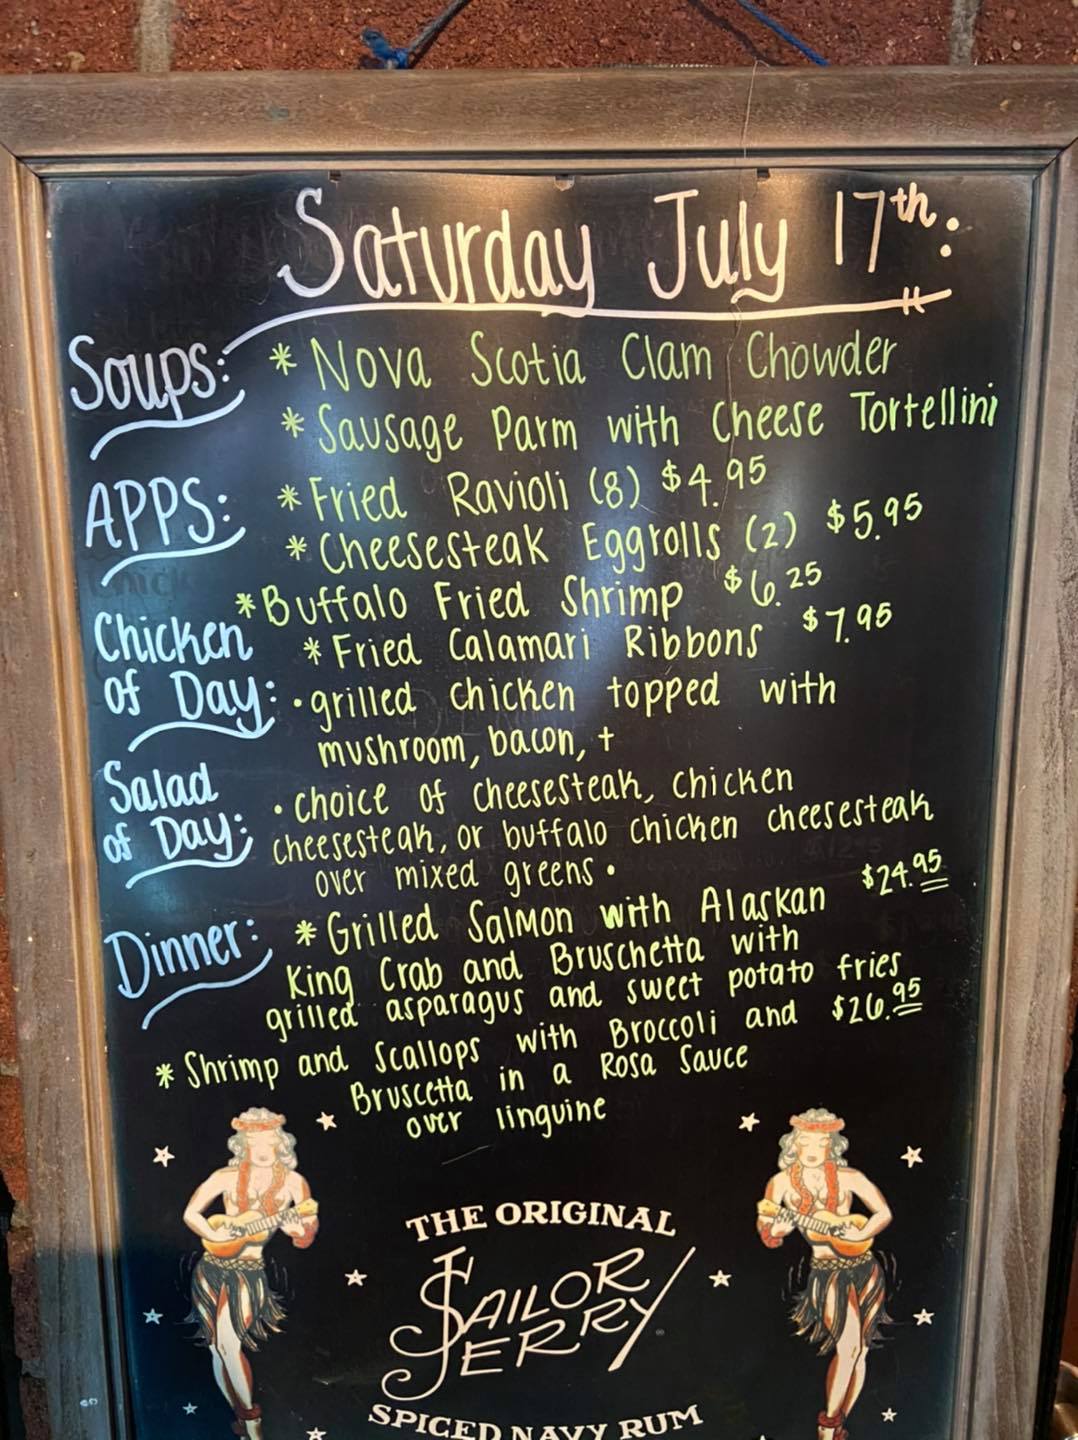 Saturday July 17th:
Soups: * Nova Scotia Clam Chowder
* Sausage Parm with Cheese Tortellini
APPS: * Fried Ravioli (8) $4.95
* Cheesesteak Eggrolls (2) $5.95
* Buffalo Fried Shrimp $6.25
* Fried Calamari Ribbons $7.95
Chicken
of Day: • grilled chicken topped with
mushroom, bacon, +
Salad
of Day: • choice of cheesesteak, chicken
cheesesteak, or buffalo chicken cheesesteak
over mixed greens •
Dinner: * Grilled Salmon with Alaskan $24.95
King Crab and Bruschetta with
grilled asparagus and sweet potato fries
* Shrimp and Scallops with Broccoli and $26.95
Bruscetta in a Rosa Sauce
over linguine
THE ORIGINAL
SAILOR
JERRY
SPICED NAVY RUM